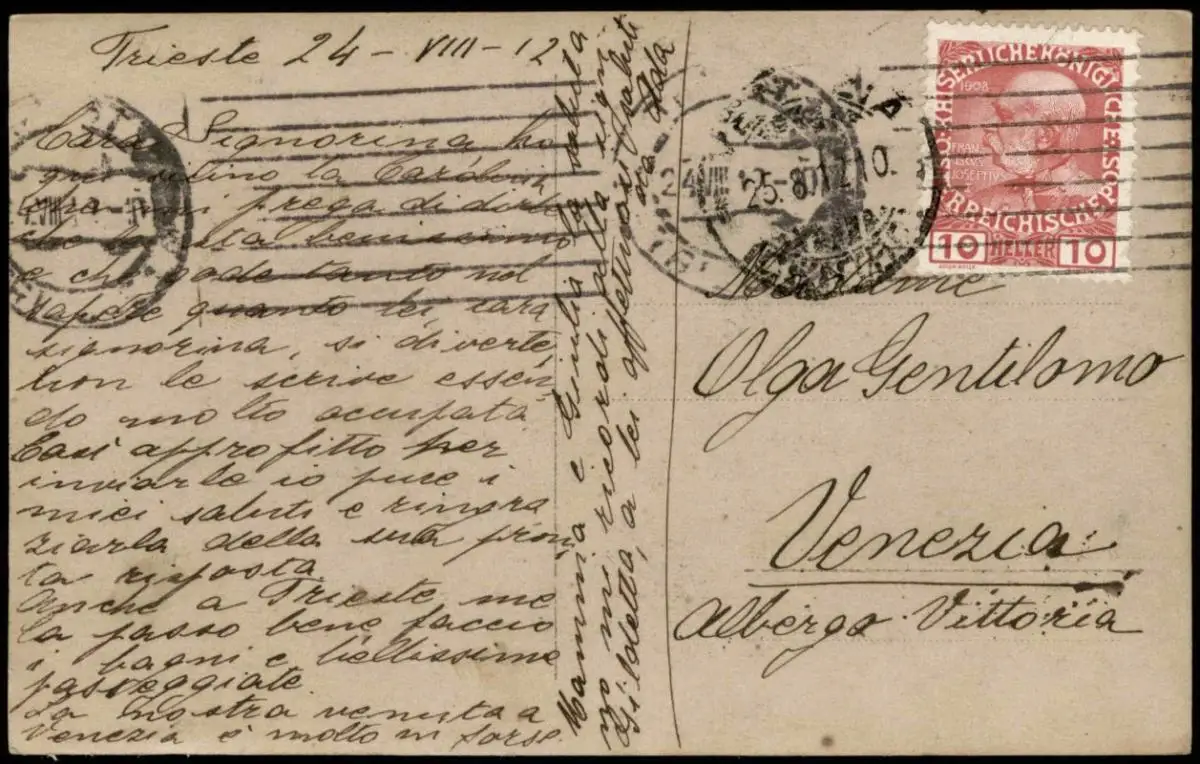 Trieste 24 - VIII - 12
Cara Signorina ho
qui vicino la
che mi prega di dirle
che sta benissimo
e che gode tanto nel
sapere quanto lei, cara
signorina, si diverte,
non le scrive essen
do molto occupata
Così approfitto per
inviarle io pure i
miei saluti e ringra
ziarla della sua pron
ta risposta
Anche a Trieste me
la passo bene faccio
i bagni e bellissime
passeggiate.
La nostra venuta a
Venezia è molto in forse.
Mammà e Giulia la saluta
no mi ricordi alla signa
Gildetta, a lei affettuosi saluti
Ada
Madame
Olga Gentilomo
Venezia
Albergo Vittoria
KAISERLICHE KÖNIGLICHE ÖSTERREICHISCHE POST
1908
FRAN
CISCVS
IOSEFIVS I
10 HELLER 10
25-8 12 10